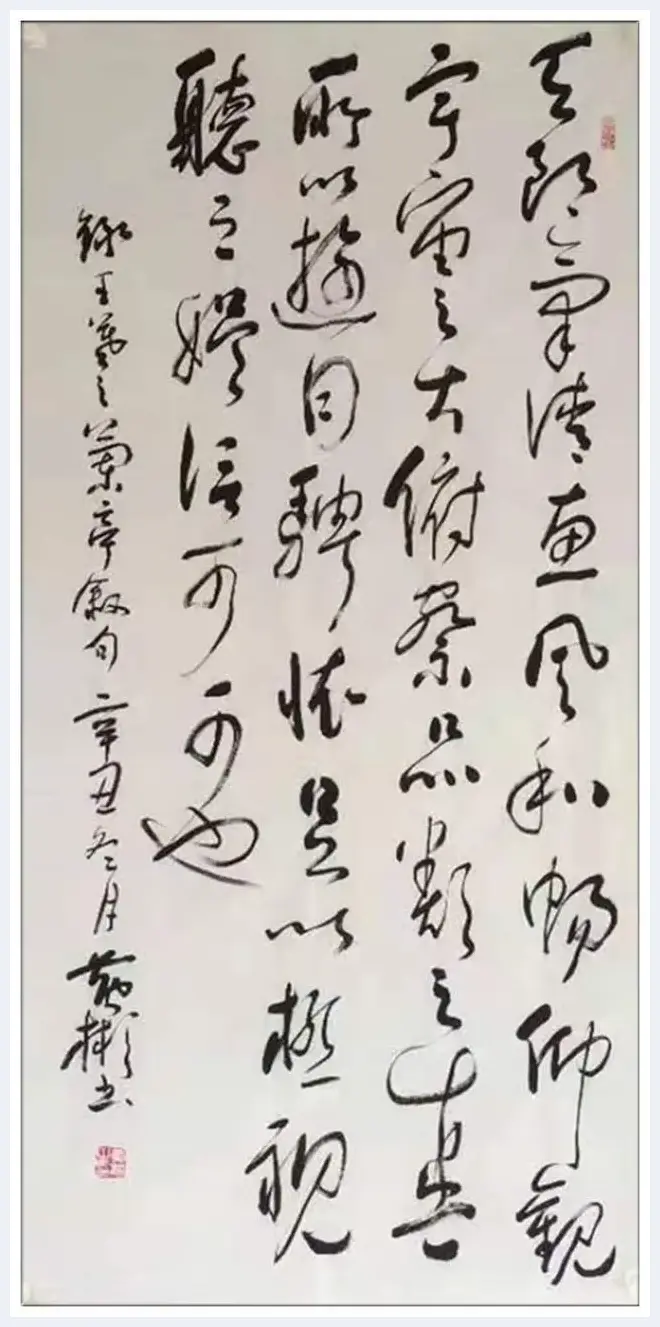 天朗氣清惠風和暢仰觀
宇宙之大俯察品類之盛
所以遊目騁懷足以極視
聽之娛信可可也
錄王羲之蘭亭敘句 辛丑冬月 黃彬書